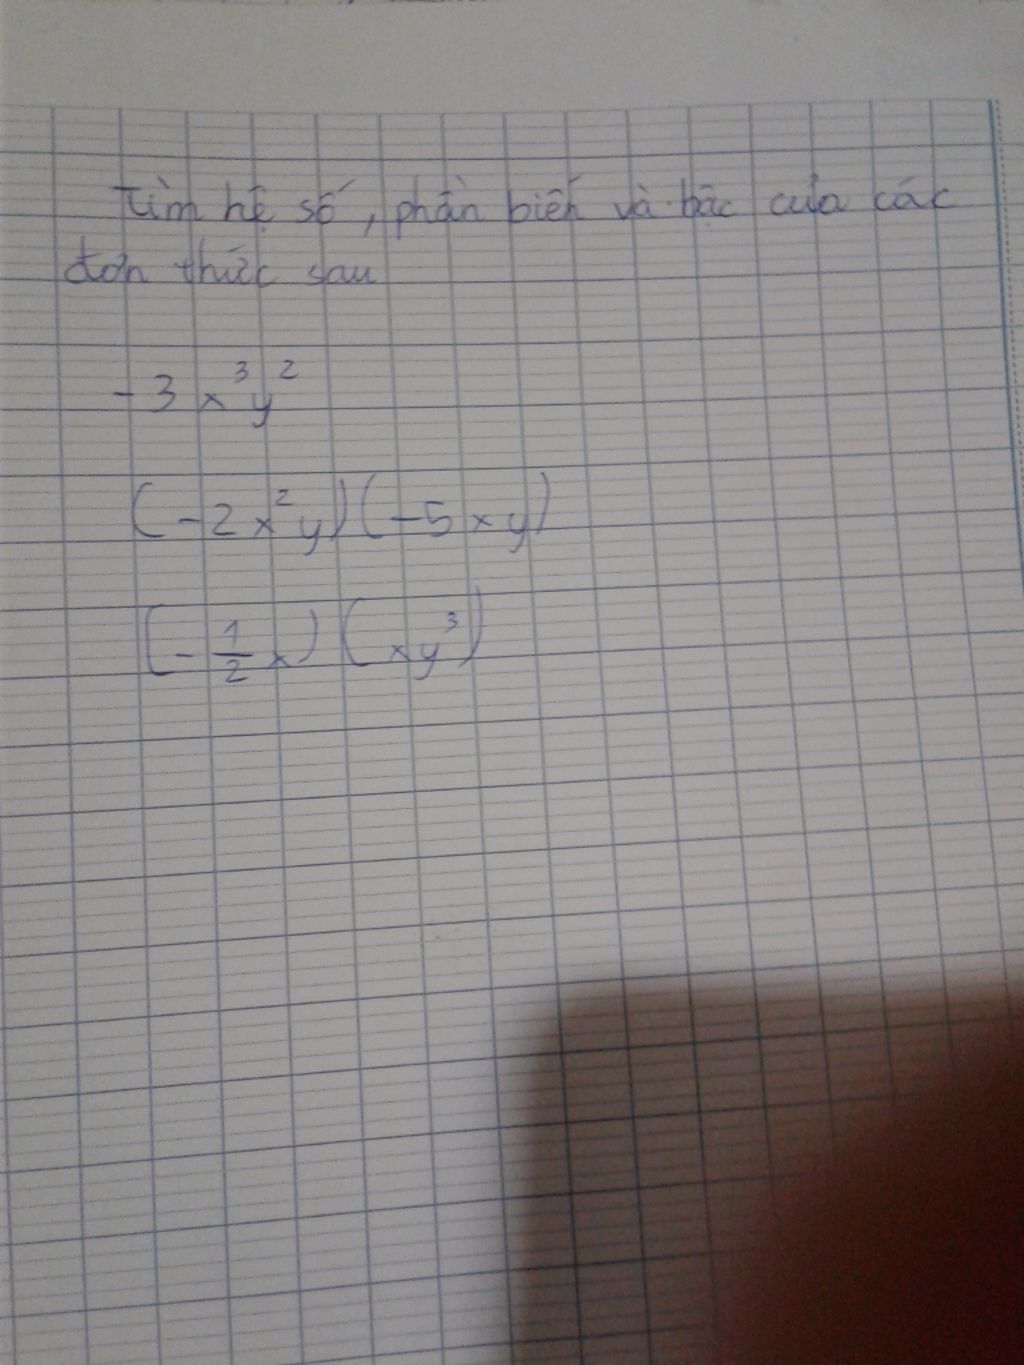 Tìm hệ số, phần biến và bậc của các
đơn thức sau
-3x³y²
(-2x²y)(-5xy)
(-1/2x)(xy³)